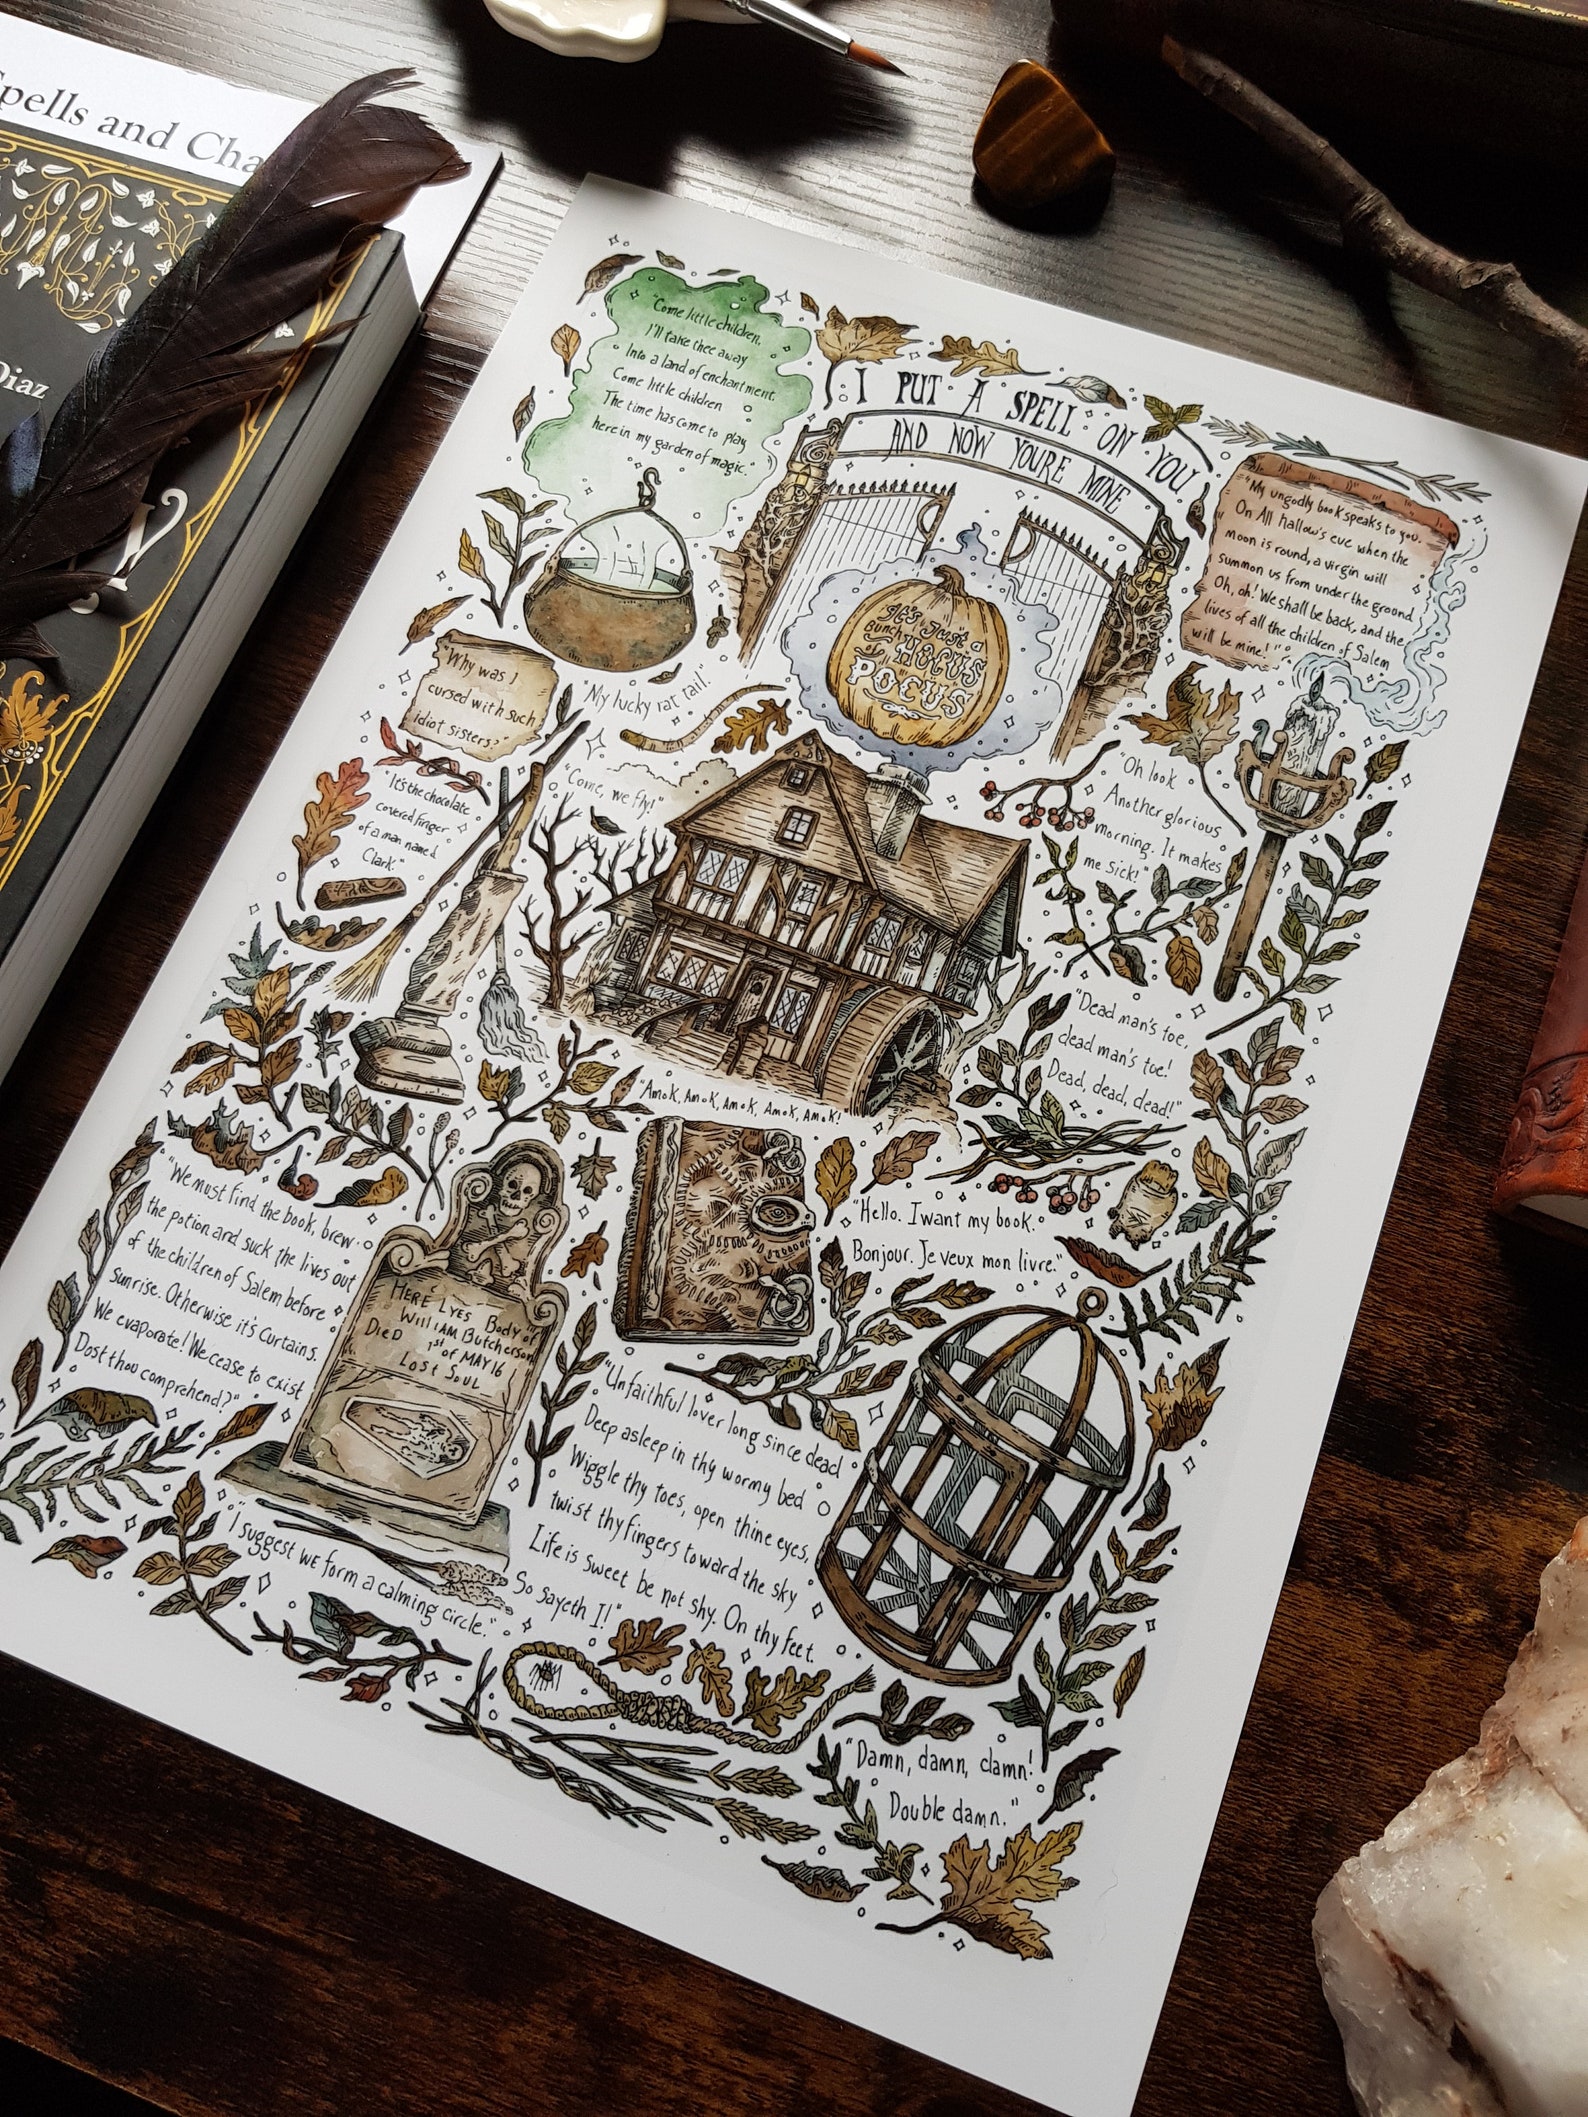 Spells and
Diaz
y
"Come little children,
I'll take thee away
Into a land of enchantment.
Come little children
The time has come to play
here in my garden of magic."
I PUT A SPELL ON YOU
AND NOW YOURE MINE
"My ungodly book speaks to you.
On All Hallow's eve when the
moon is round, a virgin will
summon us from under the ground
Oh, oh! We shall be back, and the
lives of all the children of Salem
will be mine!"
It's Just a
Bunch of HOCUS
POCUS
"Why was I
cursed with such
idiot sisters?"
"My lucky rat tail."
"Come, we fly!"
"It's the chocolate
covered finger
of a man named
Clark."
"Oh look
Another glorious
morning. It makes
me sick!"
"Dead man's toe,
dead man's toe!
Dead, dead, dead!"
"Amok, Amok, Amok, Amok, Amok!"
"Hello. I want my book.
Bonjour. Je veux mon livre."
"We must find the book, brew
the potion and suck the lives out
of the children of Salem before
sunrise. Otherwise it's curtains.
We evaporate! We cease to exist
Dost thou comprehend?"
HERE LYES BODY of
WilliAM BUTCHERSON
DiED 1st of MAY 16
LOST SOUL
"Unfaithful lover long since dead
Deep asleep in thy wormy bed
Wiggle thy toes, open thine eyes,
twist thy fingers toward the sky
Life is sweet be not shy. On thy feet.
So sayeth I!"
"I suggest WE form a calming circle."
"Damn, damn, damn!
Double damn."